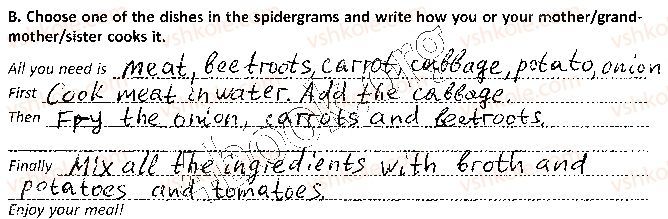 B. Choose one of the dishes in the spidergrams and write how you or your mother/grand-
mother/sister cooks it.
All you need is meat, beetroots, carrot, cabbage, potato, onion
First Cook meat in water. Add the cabbage.
Then Fry the onion, carrots and beetroots.
Finally Mix all the ingredients with broth and
potatoes and tomatoes.
Enjoy your meal!